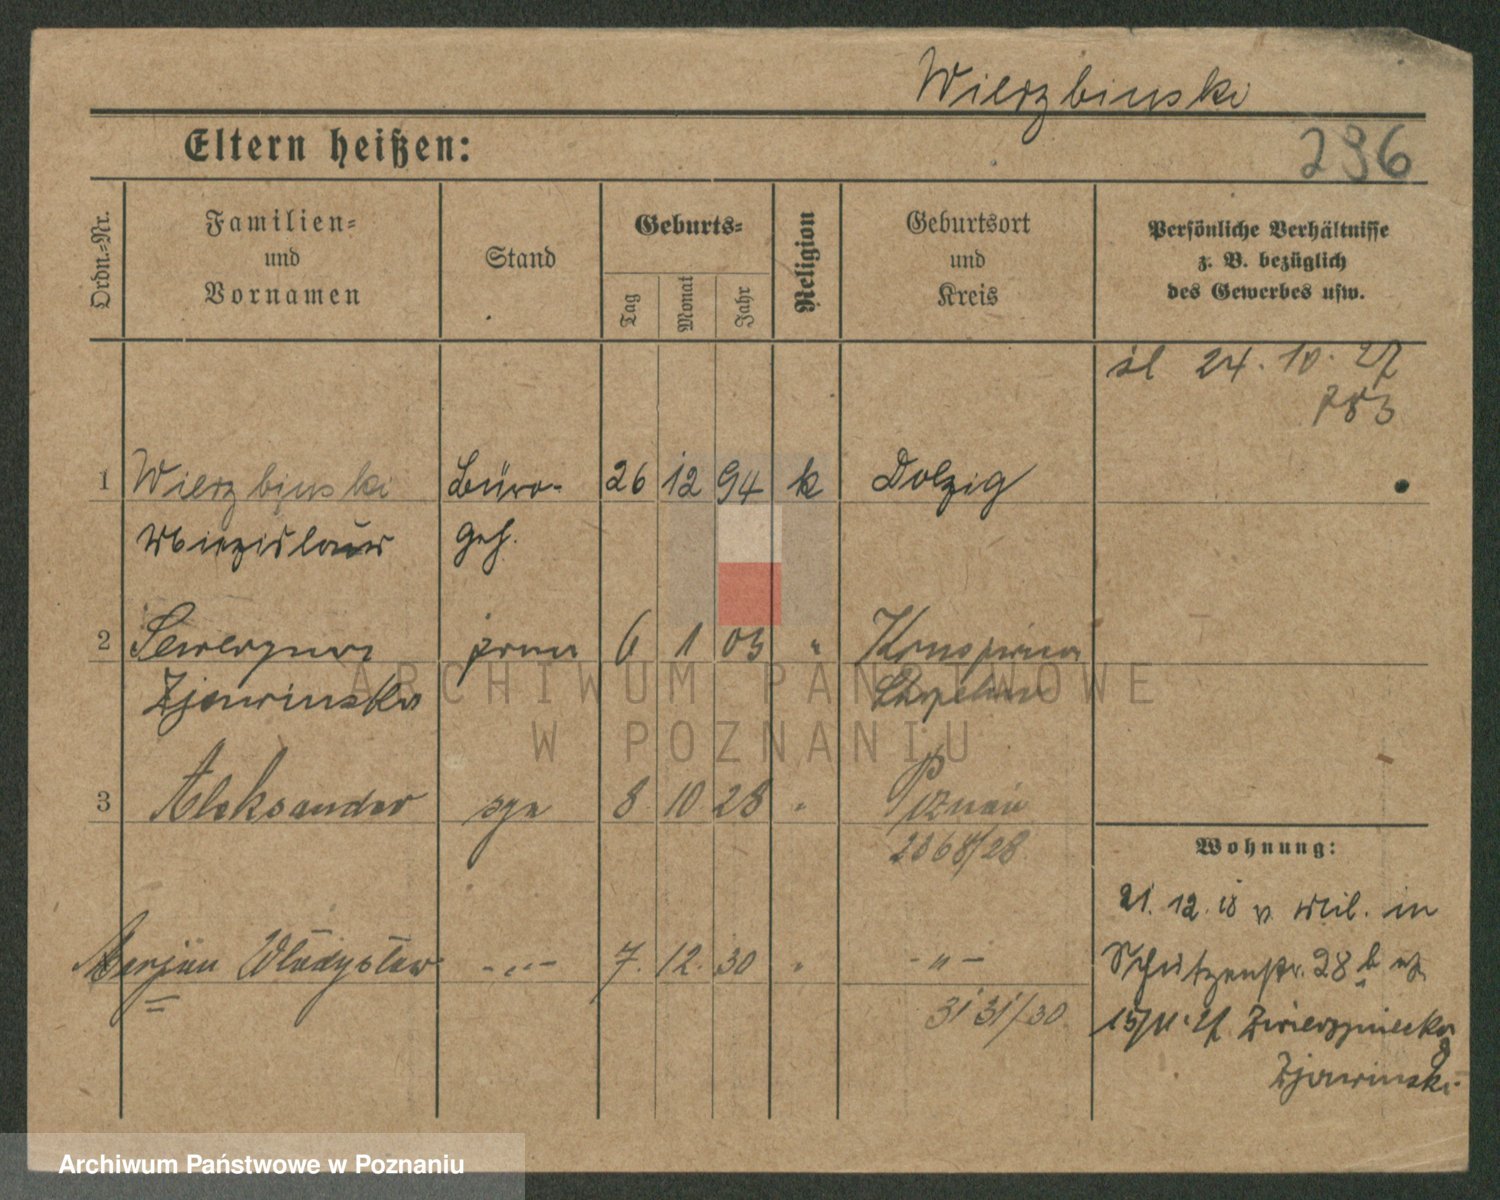 Wierzbinski
Eltern heißen:
296
Ordn.-Nr.
Familien-
und
Vornamen
Stand
Geburts-
Tag
Monat
Jahr
Religion
Geburtsort
und
Kreis
Persönliche Verhältnisse
z. B. bezüglich
des Gewerbes usw.
śl 24. 10. 27
783
1 Wierzbinski Büro- 26 12 94 k Dolzig
Miezislaus Geh.
2 Seweryna żona 6 1 03 "
Zjawinska
3 Aleksander syn 8. 10 28 " Poznań
2368/28
Wohnung:
21. 12. 18 v. Mil. in
Schützenstr. 28 b
Marjan Władysław -"- 7. 12. 30 " -"-
3131/30
15/11. 21. Zwierzyniecka
8
Zjawinski
ARCHIWUM PAŃSTWOWE
W POZNANIU
Archiwum Państwowe w Poznaniu